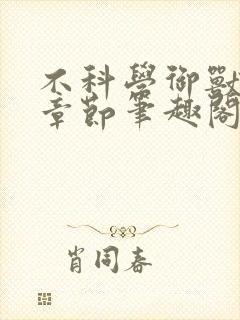 不科學御獸
章節筆趣閣
肖同春